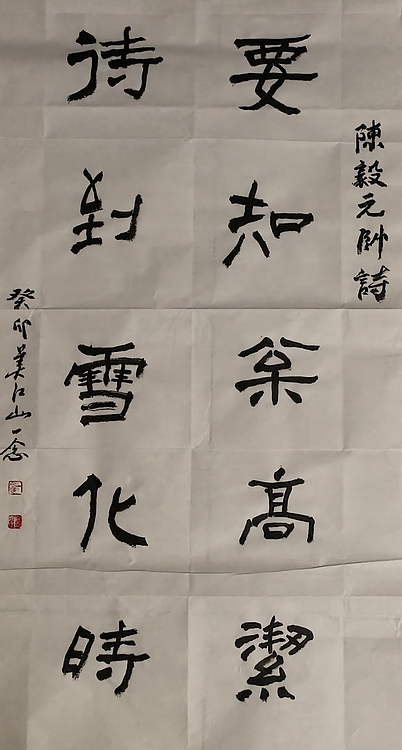 陳毅元帥詩
要知枀高潔
待到雪化時
癸卯江山一念